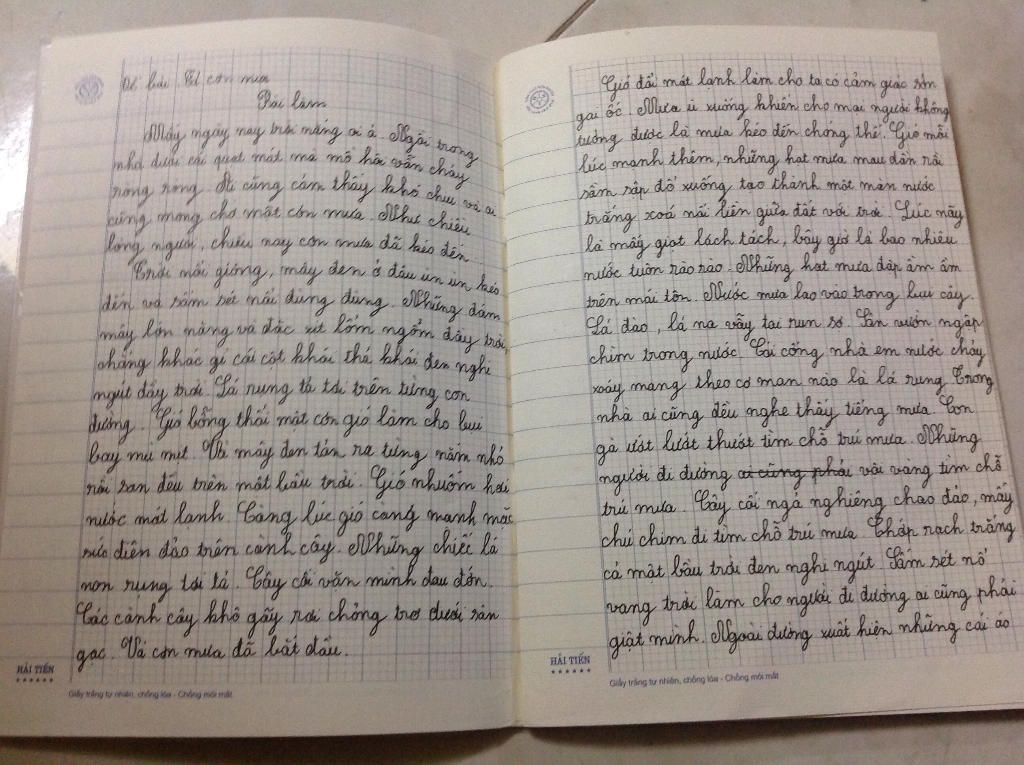 Đề bài: Tả cơn mưa
Bài làm
Mấy ngày nay trời nắng oi ả. Ngồi trong
nhà dưới cái quạt mát mà mồ hôi vẫn chảy
ròng ròng. Ai cũng cảm thấy khó chịu và ai
cũng mong chờ một cơn mưa. Như chiều
lòng người, chiều nay cơn mưa đã kéo đến.
Trời nổi giông, mây đen ở đâu ùn ùn kéo
đến và sấm sét nổi đùng đùng. Những đám
mây lớn nặng và đặc xịt lổm ngổm đầy trời,
chẳng khác gì cái cột khói thả khói đen nghi
ngút đầy trời. Lá rụng tả tơi trên từng con
đường. Gió bỗng thổi một cơn gió làm cho bụi
bay mù mịt. Và mây đen tản ra từng nắm nhỏ
rồi san đều trên một bầu trời. Gió nhuốm hơi
nước mát lạnh. Càng lúc gió càng mạnh mặc
sức điên đảo trên cành cây. Những chiếc lá
non rụng tơi tả. Cây cối vặn mình đau đớn.
Các cành cây khô gãy rơi chỏng trơ dưới sàn
gạc. Và cơn mưa đã bắt đầu.
HẢI TIẾN
Giấy trắng tự nhiên, chống lóa - Chống mỏi mắt
Gió đổi mát lạnh làm cho ta có cảm giác sởn
gai ốc. Mưa ù xuống khiến cho mọi người không
tưởng được là mưa kéo đến chóng thế. Gió mỗi
lúc mạnh thêm, những hạt mưa mau dần rồi
sầm sập đổ xuống tạo thành một màn nước
trắng xoá nối liền giữa đất với trời. Lúc nãy
là mấy giọt lách tách, bây giờ là bao nhiêu
nước tuôn rào rào. Những hạt mưa đập ầm ầm
trên mái tôn. Nước mưa lao vào trong bụi cây.
Lá đào, lá na vẫy tai run sợ. Sân vườn ngập
chìm trong nước. Cái cống nhà em nước chảy
xoáy mang theo cơ man nào là lá rụng. Trong
nhà ai cũng đều nghe thấy tiếng mưa. Con
gà ướt lướt thướt tìm chỗ trú mưa. Những
người đi đường ai cũng phải vội vàng tìm chỗ
trú mưa. Cây cối ngả nghiêng chao đảo, mấy
chú chim đi tìm chỗ trú mưa. Chớp rạch trắng
cả một bầu trời đen nghi ngút. Sấm sét nổ
vang trời làm cho người đi đường ai cũng phải
giật mình. Ngoài đường xuất hiện những cái áo
HẢI TIẾN
Giấy trắng tự nhiên, chống lóa - Chống mỏi mắt